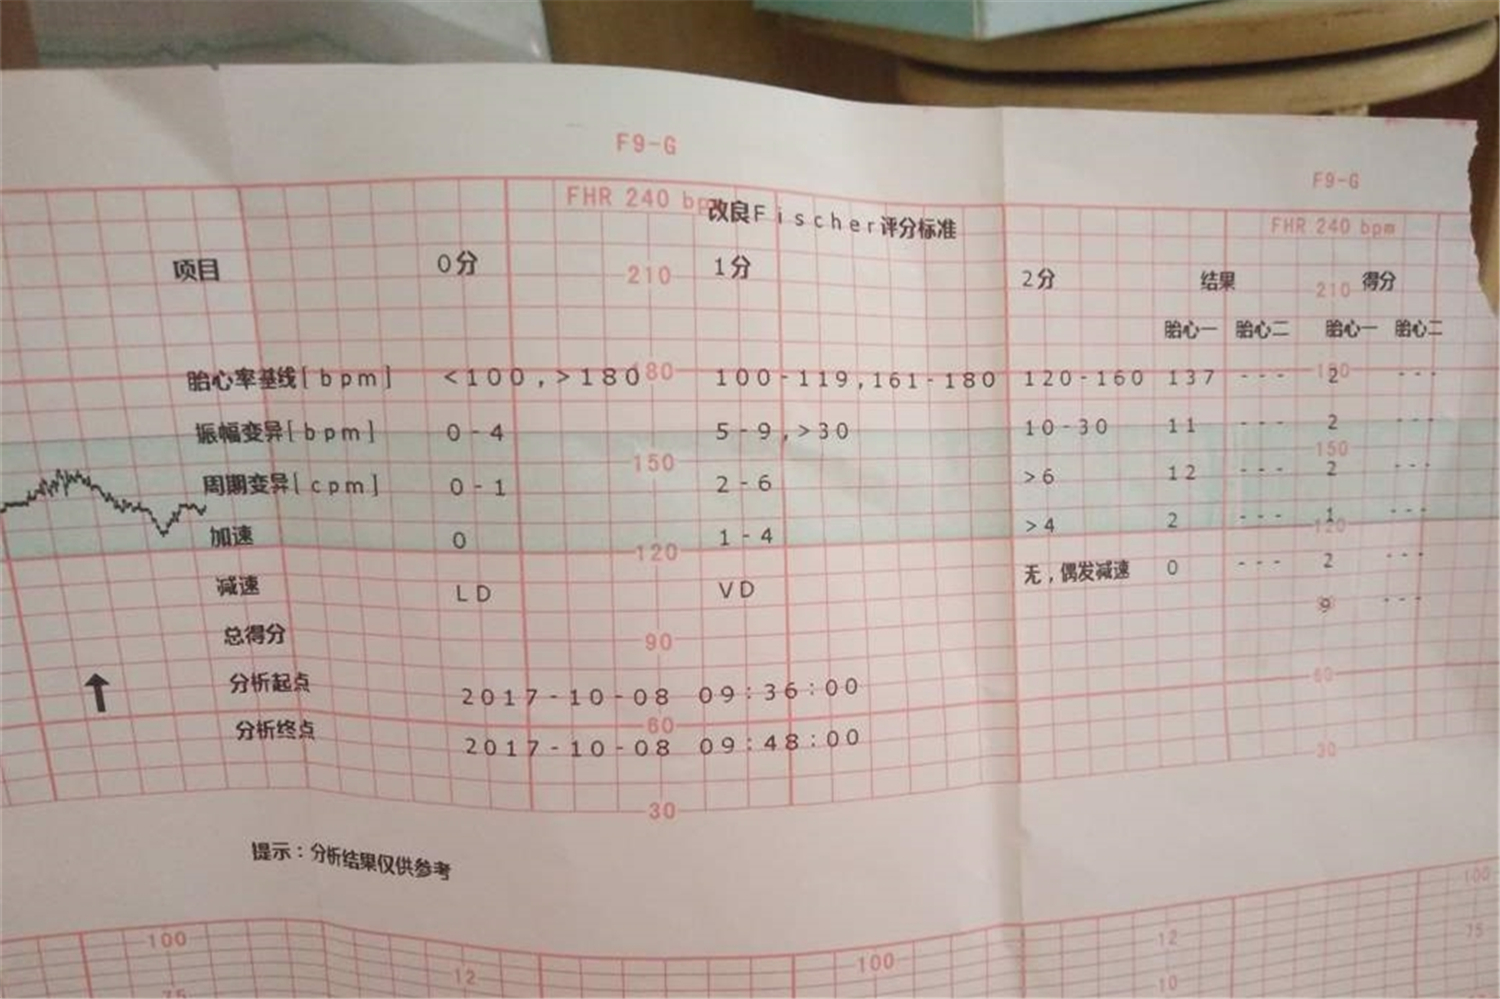 F9-G
F9-G
FHR 240 bpm
改良Fischer评分标准
FHR 240 bpm
项目 0分 210 1分 2分 结果 210 得分
胎心一 胎心二 胎心一 胎心二
胎心率基线[bpm] <100,>180 100-119,161-180 120-160 137 --- 2 ---
振幅变异[bpm] 0-4 5-9,>30 10-30 11 --- 2 ---
150 150
周期变异[cpm] 0-1 2-6 >6 12 --- 2 ---
加速 0 1-4 >4 2 --- 1 ---
120 120
减速 LD VD 无,偶发减速 0 --- 2 ---
总得分 9 ---
90
分析起点 2017-10-08 09:36:00
60
分析终点 2017-10-08 09:48:00
30 30
提示:分析结果仅供参考
100 100 12 100
12 10 75
75